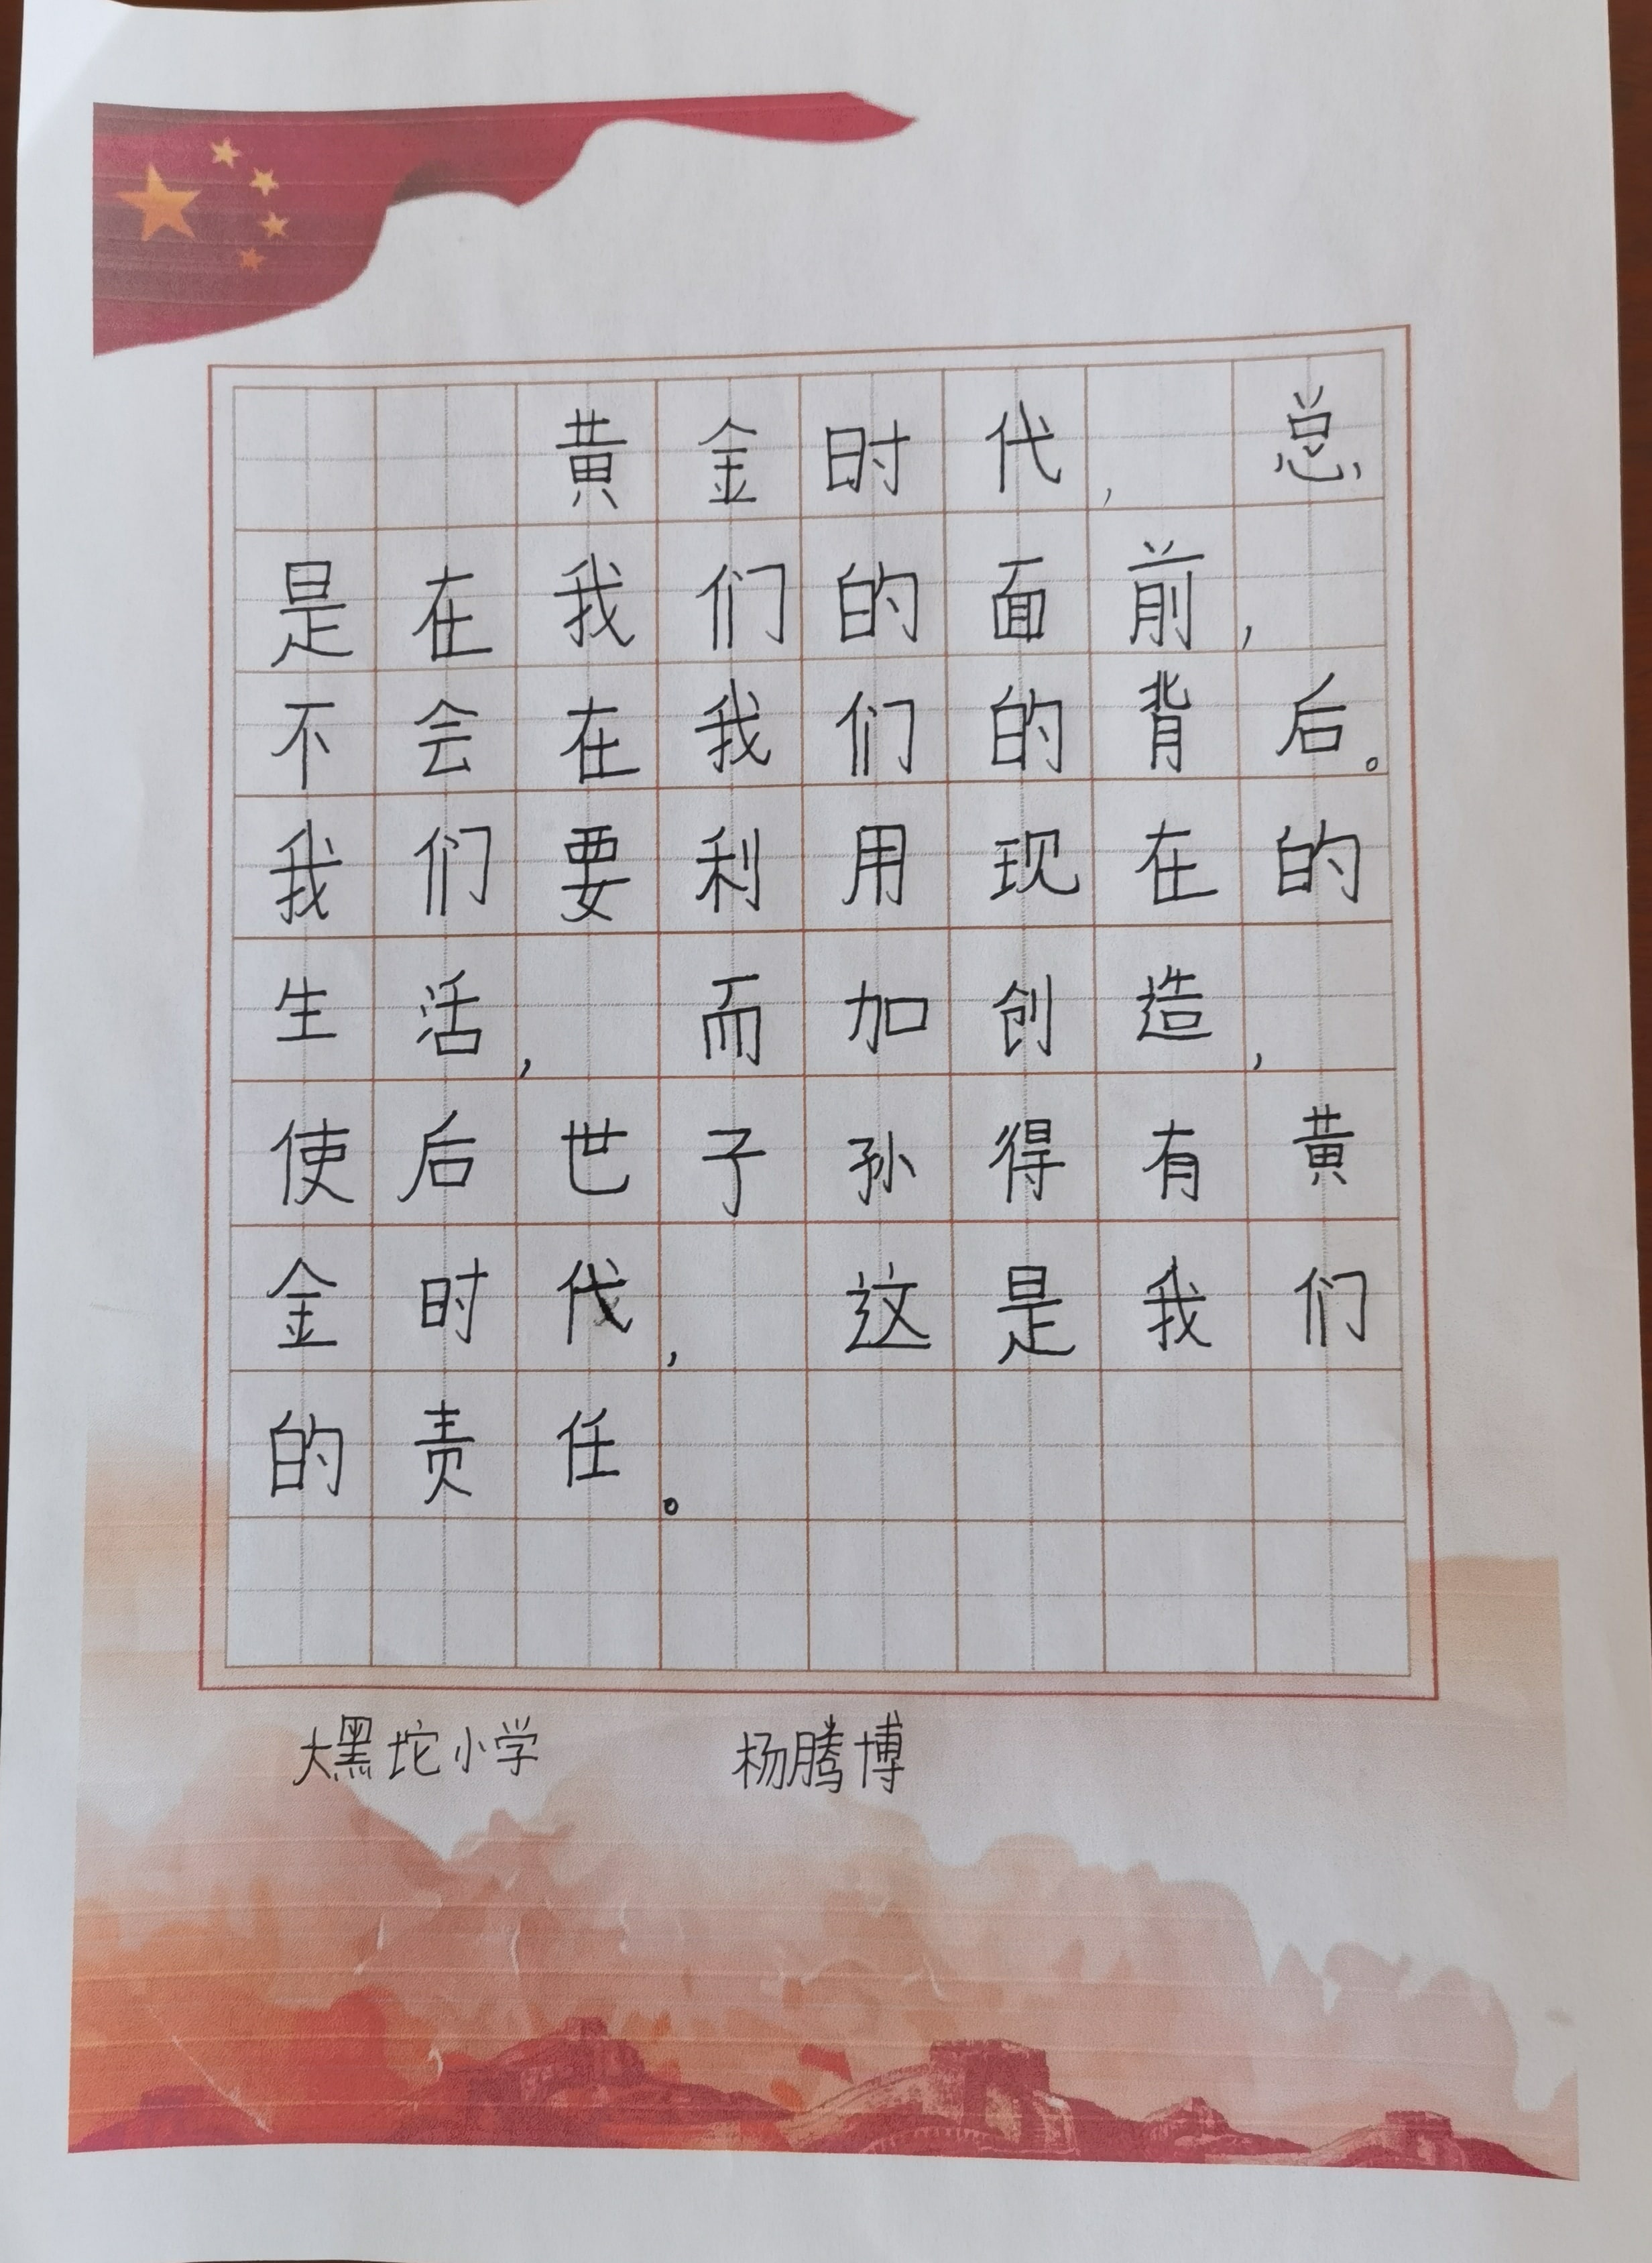 黄金时代，总
是在我们的面前，
不会在我们的背后。
我们要利用现在的
生活，而加创造，
使后世子孙得有黄
金时代，这是我们
的责任。
大黑坨小学 杨腾博